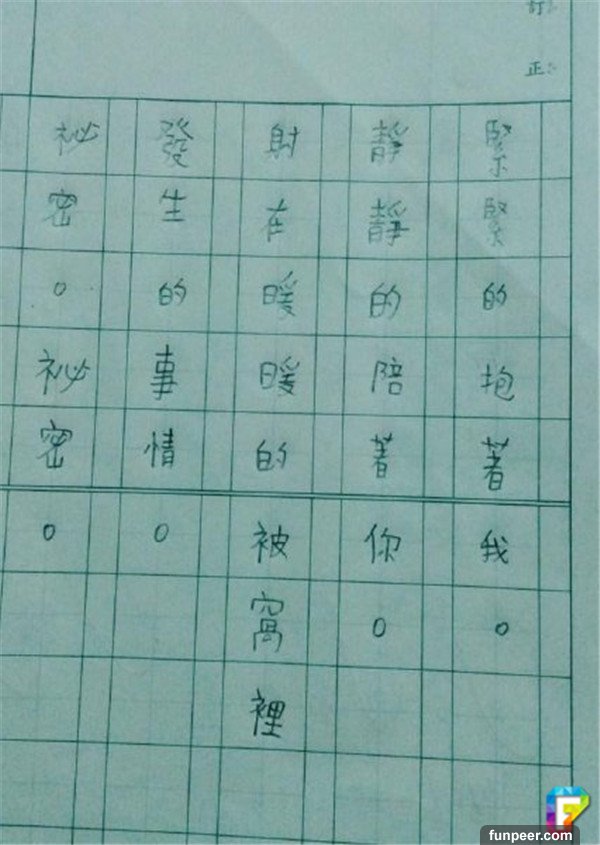 訂:
正:
緊緊的抱著我。
靜靜的陪著你。
射在暖暖的被窩裡
發生的事情。
祕密。祕密。
funpeer.com